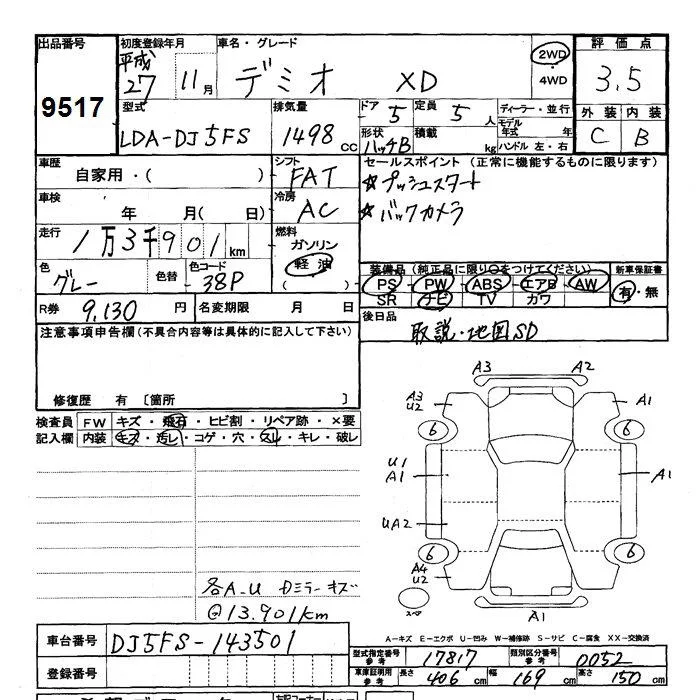 出品番号 9517
初度登録年月 平成27 11月
車名・グレード デミオ XD
2WD・4WD
評価点 3.5
型式 LDA-DJ5FS
排気量 1498 cc
ドア 5 定員 5人
形状 ハッチB 積載 kg
ディーラー・並行
モデル年式 年
ハンドル 左・右
外装 C 内装 B
車歴 自家用・( )
シフト FAT
セールスポイント (正常に機能するものに限ります)
☆プッシュスタート
☆バックカメラ
車検 年 月( 日)
冷房 AC
走行 1万3千901km
燃料 ガソリン 軽油 ( )
色 グレー 色替 色コード 38P
装備品 (純正品に限り○をつけてください) 新車保証書
PS PW ABS エアB AW 有・無
SR ナビ TV カワ
R券 9,130円 名変期限 月 日
後日品 取説・地図SD
注意事項申告欄(不具合内容等は具体的に記入して下さい)
修復歴 有 [箇所 ]
検査員記入欄 FW キズ・飛石・ヒビ割・リペア跡・×要
内装 キズ・汚レ・コゲ・穴・スレ・キレ・破レ
A3 A2
A3 U2 A1
6 6
U1 A1 A1
UA2
6 6
A4 U2
スペア A1
各A-U Dミラーキズ
@13.901km
A-キズ E-エクボ U-凹み W-補修跡 S-サビ C-腐食 XX-交換済
車台番号 DJ5FS-143501
型式指定番号 参考 17817 類別区分番号 参考 0052
登録番号
車庫証明用 参考 長さ 406cm 幅 169cm 高さ 150cm